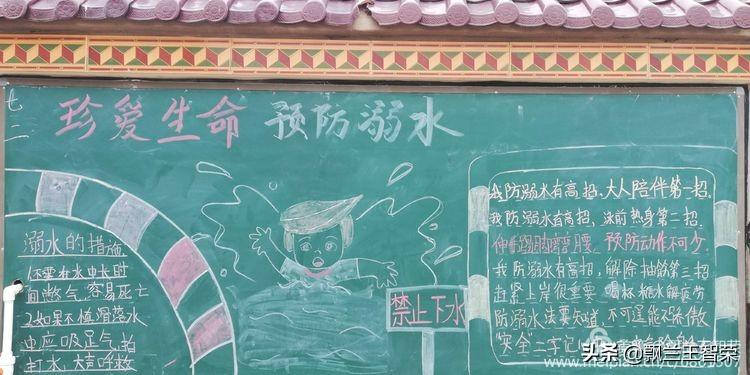 七二
珍爱生命 预防溺水
溺水的措施
1.不要在水中长时
间憋气,容易死亡
2.如果不慎落水
中应吸足气,拍
打水,大声呼救
禁止下水
我防溺水有高招,大人陪伴第一招。
我防溺水有高招,泳前热身第二招。
伸手踢脚弯弯腰 预防动作不可少
我防溺水有高招,解除抽筋第三招
赶紧上岸很重要 喝杯糖水解疲劳
防溺水法要知道,不可逞能
"安全"二字记
头条@飘兰王智荣